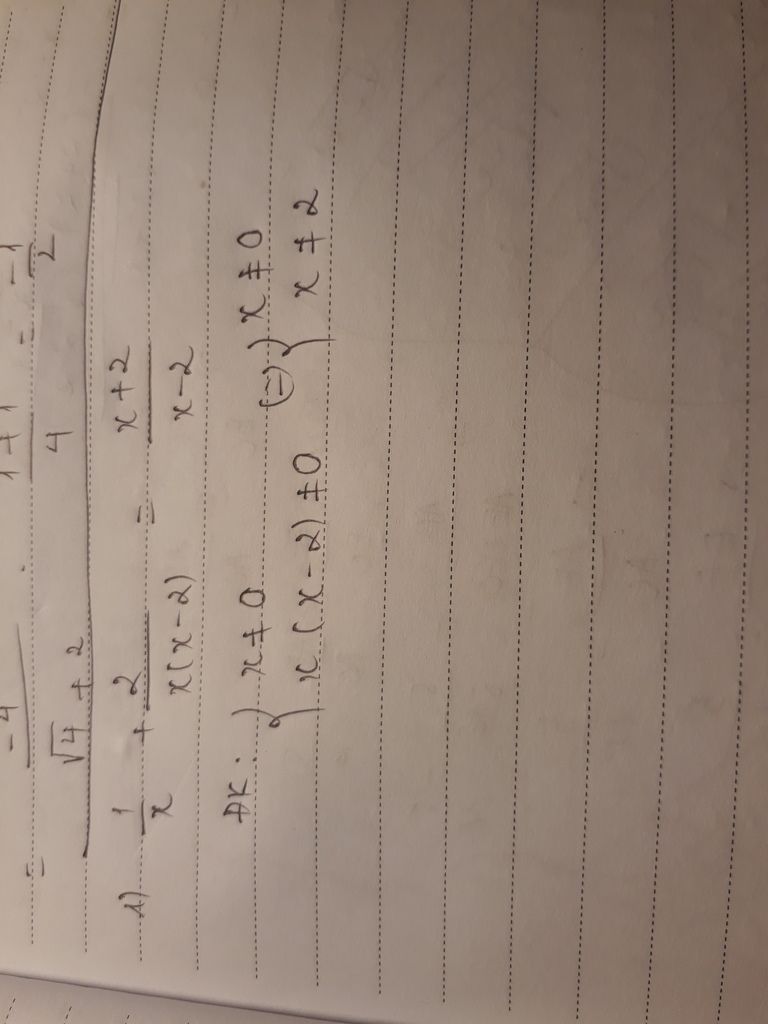 = -4/(√4 + 2) . 1+1/4 = -1/2
1) 1/x + 2/(x(x-2)) = (x+2)/(x-2)
ĐK: { x ≠ 0 (=) { x ≠ 0
x(x-2) ≠ 0 x ≠ 2